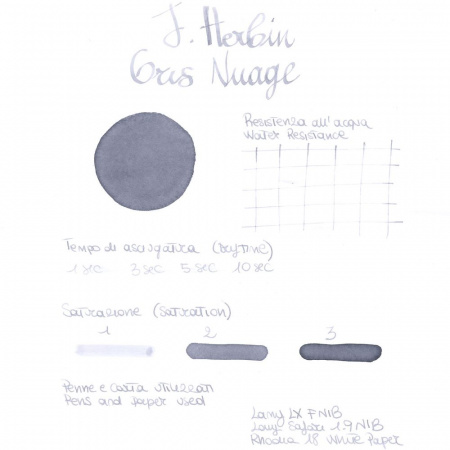 J. Herbin
Gris Nuage
Resistenza all'acqua
Water Resistance
Tempo di asciugatura (Drytime)
1 sec 3 sec 5 sec 10 sec
Saturazione (Saturation)
1 2 3
Penne e carta utilizzati
Pens and paper used
Lamy LX F NIB
Lamy Safari 1.9 NIB
Rhodia 18 White Paper